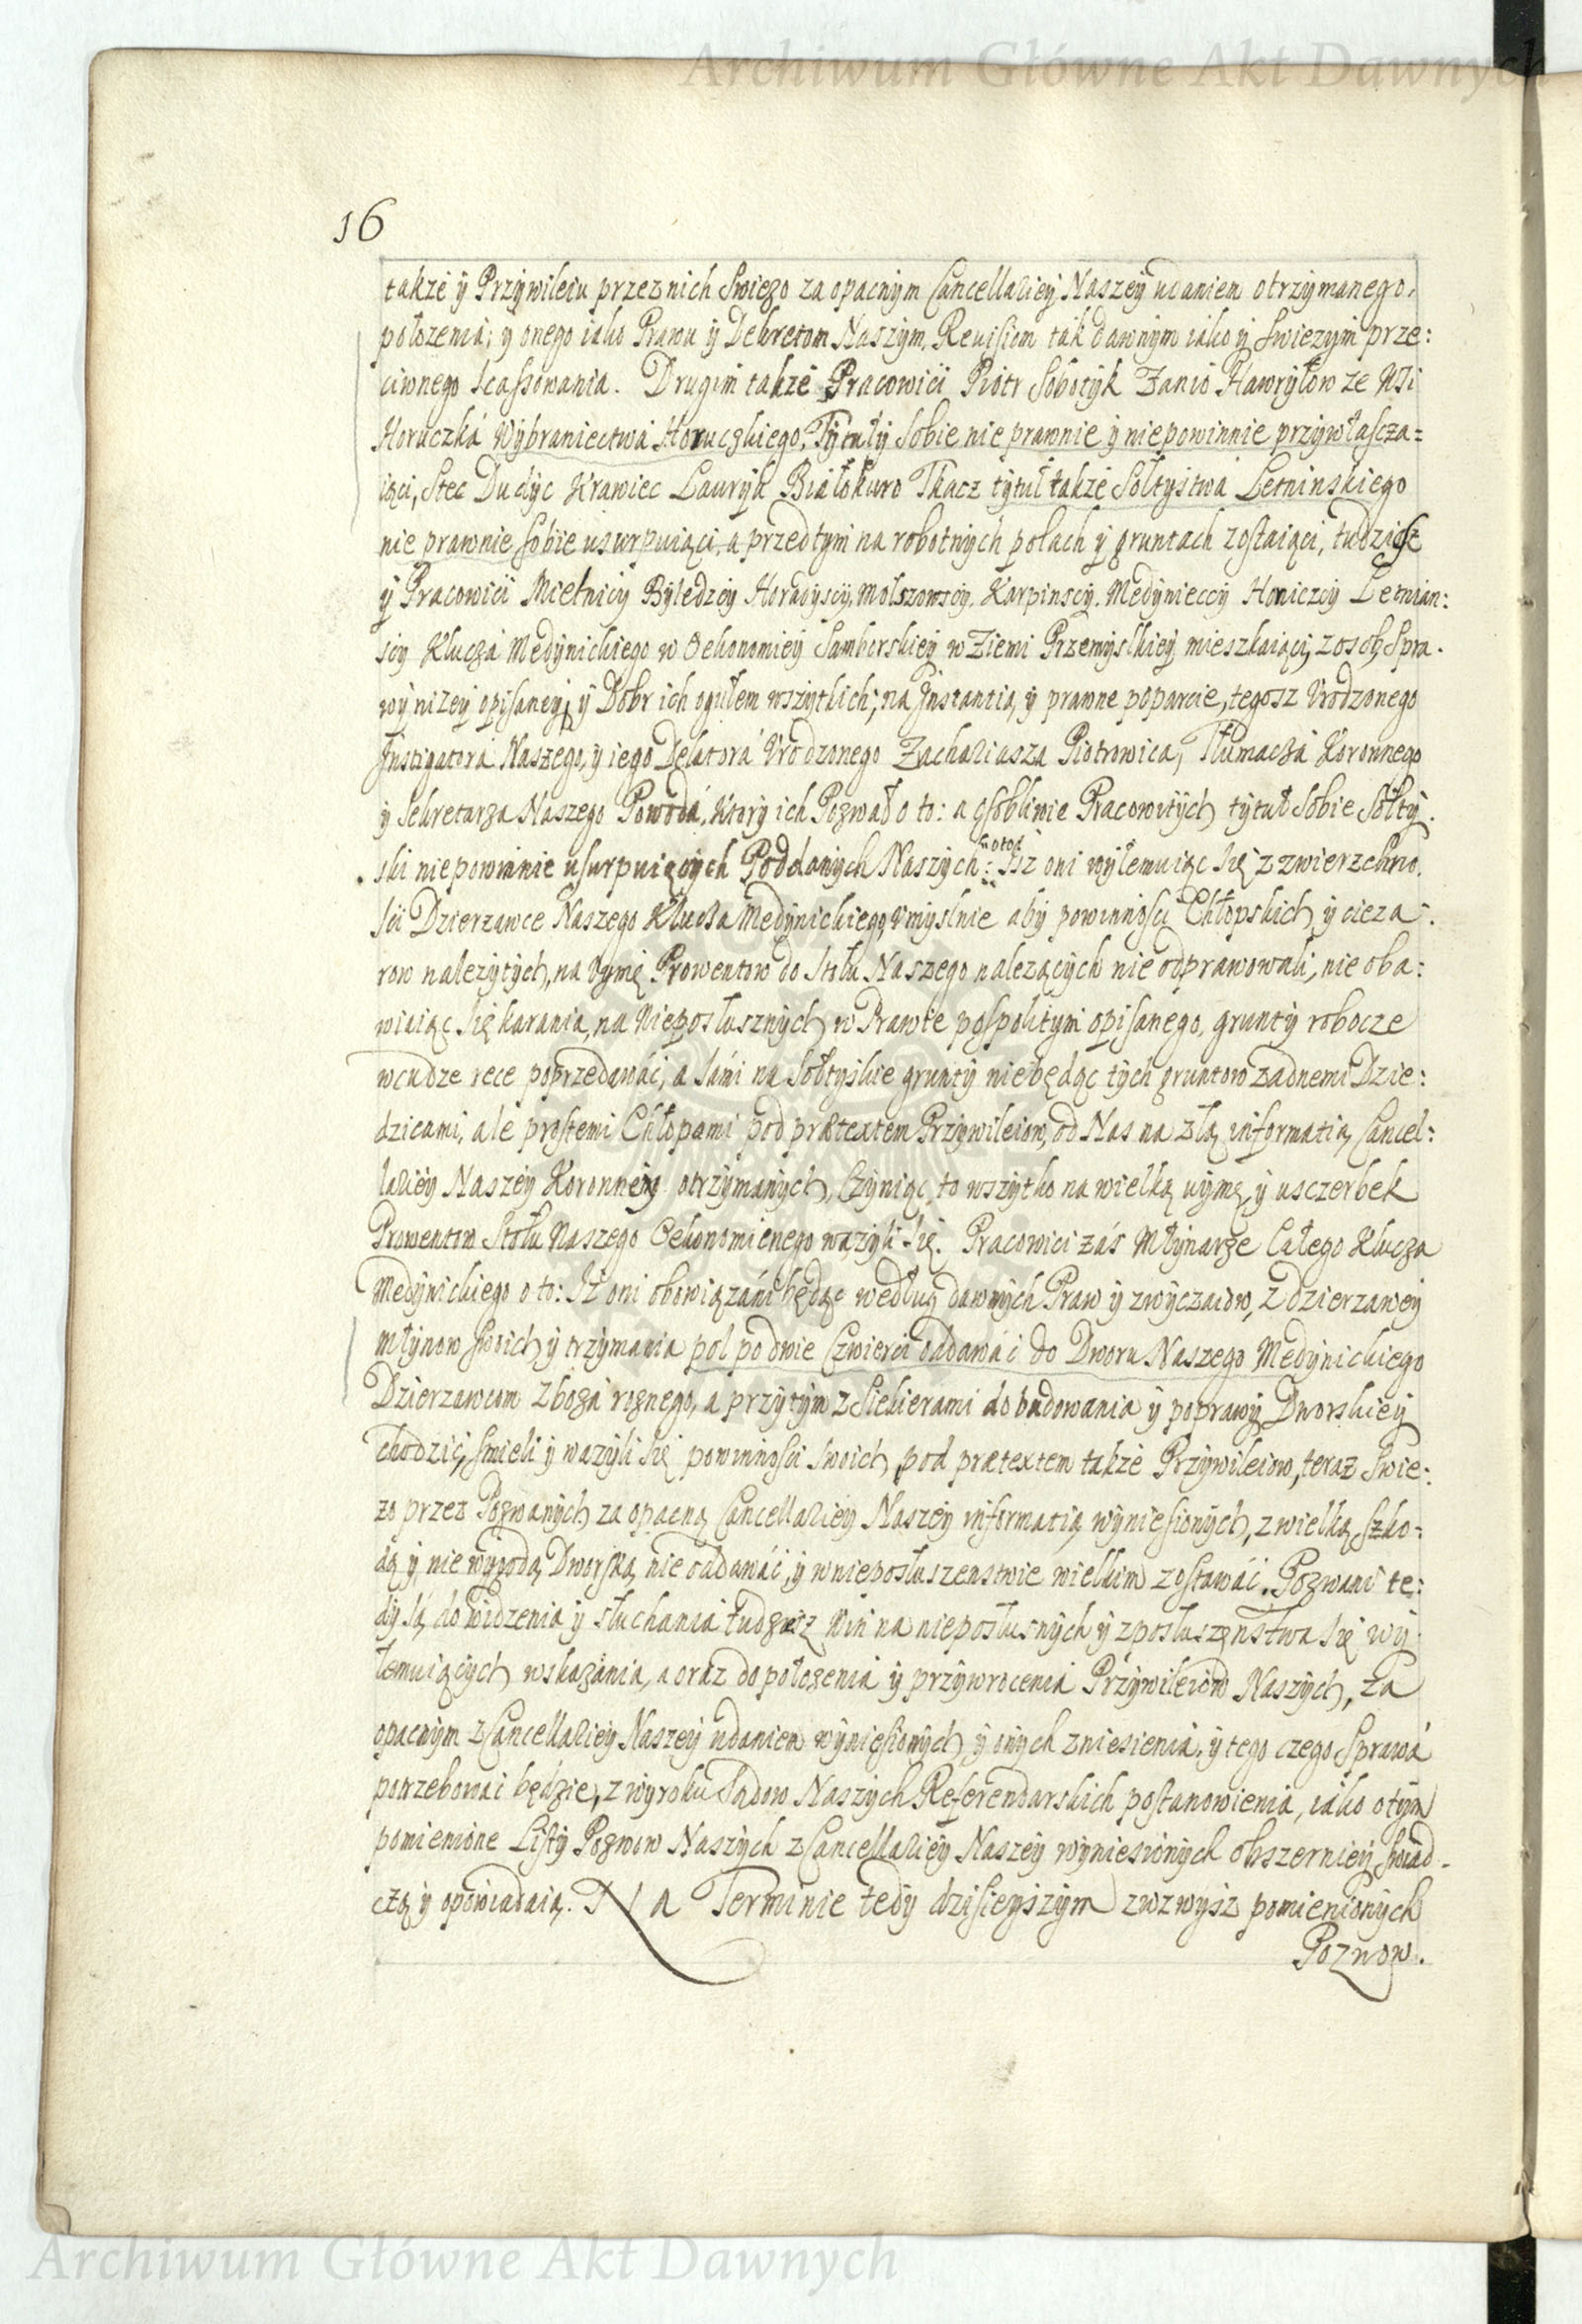 Archiwum Główne Akt Dawnych
16
także ÿ Przÿwileiu przez nich Swiezo za opacnÿm Cancellariey Naszeÿ udaniem otrzÿmanego,
położenia; ÿ onego iako Prawu ÿ Dekretom Naszÿm, Reuisiom tak dawnÿm iako ÿ Swiezÿm prze:
ciwnego scassowania. Drugim także Pracowici Piotr Sobotÿk Hawrÿłow ze Wsi
Horuczka Wÿbraniectwa Horuczkiego, Tÿtułÿ Sobie nie prawnie ÿ niepowinnie przÿwłascza=
iąci, Stec Dudÿc Krawiec Laurÿk Białokuro Tkacz tÿtuł także Sołtÿstwa Letninskiego
nie prawnie sobie usurpuiąci, a przedtÿm na robotnÿch polach ÿ gruntach zostaiąci, tudziesz
ÿ Pracowici Mielnicÿ Bÿledzcÿ Horadÿscÿ, Molszowscÿ, Karpinscÿ, Medÿnieccÿ Honiczcÿ Letnian:
scÿ Klucza Medÿnickiego w Oekonomieÿ Samborskieÿ w Ziemi Przemÿslkieÿ mieszkaiąci, z osob, Spra.
wÿ nizeÿ opisaneÿ, ÿ Dobr ich ogułem wszÿtkich; na Jnstantią ÿ prawne poparcie, tegosz Vrodzonego
Jnstigatora Naszego, ÿ iego Delatora Vrodzonego Zachariasza Piotrowica, Tłumacza Koronnego
ÿ Sekretarza Naszego Powoda, Ktorÿ ich Pozwał o to: a osobliwie Pracowitÿch tÿtuł Sobie Sołtÿ.
ski niepowinnie usurpuiącÿch Poddanÿch Naszÿch: Jsz oni wÿłemuiąc Się z zwierzchno.
sci Dzierzawce Naszego Klucza Medÿnickiego, Vmÿslnie abÿ powinnosci Chłopskich ÿ cieza:
row nalezÿtÿch, na Vÿmę Prowentow do Stołu Naszego nalezącÿch nie odprawowali, nie oba:
wiaiąc Się karania, na Nieposłusznÿch w Prawie pospolitÿm opisanego, gruntÿ robocze
w cudze rece poprzedawáć, a sami na Sołtÿskie gruntÿ niebędąc tÿch gruntow zadnemi Dzie:
dzicami, ale prostemi Chłopami pod prætextem Przÿwileiow, od Nas na złą informatią Cancel:
larieÿ Naszeÿ Koronneÿ otrzÿmanÿch, Czÿniąc to wszÿtko na wielką uÿmę ÿ usczerbek
Prowentow Stołu Naszego Oekonomicnego wazÿli Się. Pracowici zás Młÿnarze Całego Klucza
Medÿnickiego o to: Jż oni obowiązáni będąc według dawnÿch Praw ÿ zwÿczaiow, z dzierzaweÿ
młÿnow swoich ÿ trzÿmania pol po dwie Czwierci oddawáć do Dworu Naszego Medÿnickiego
Dzierzawcom Zboza roznego, a przÿtÿm z Siekierami do budowania ÿ poprawÿ Dworskieÿ
chodzić, smieli ÿ wazÿli Się powinnosci swoich, pod prætextem także Przÿwileiow, teraz swie:
zo przez Pozwanÿch za opacną Cancellarieÿ Naszeÿ informatią wÿniesionÿch, z wielką szko-
dą ÿ nie wÿgodą Dworską nie oddawáć, ÿ w nieposłuszenstwie wielkim zostawáć. Pozwani te:
dÿ są do widzenia ÿ słuchania tudziesz Win na nieposłusnÿch ÿ z posłuszęnstwa Się wÿ
łemuiącÿch wskazánia, a oraz do położenia ÿ przÿwrocenia Przÿwileiow Naszÿch, za
opacnÿm z Cancellarieÿ Naszeÿ udaniem wÿniesionÿch ÿ onÿch zniesienia, ÿ tego czego Sprawa
potrzebowáć będzie, z wÿroku Sadow Naszÿch Referendarskich postanowienia, iako o tÿm
pomienione Listÿ Pozwow Naszÿch z Cancellarieÿ Naszeÿ wÿniesionÿch obszernieÿ swiad-
czą ÿ opowiadaią. NA Terminie tedÿ dzisieÿszÿm zwzwÿsz pomienionÿch
Pozwow.
Archiwum Główne Akt Dawnych